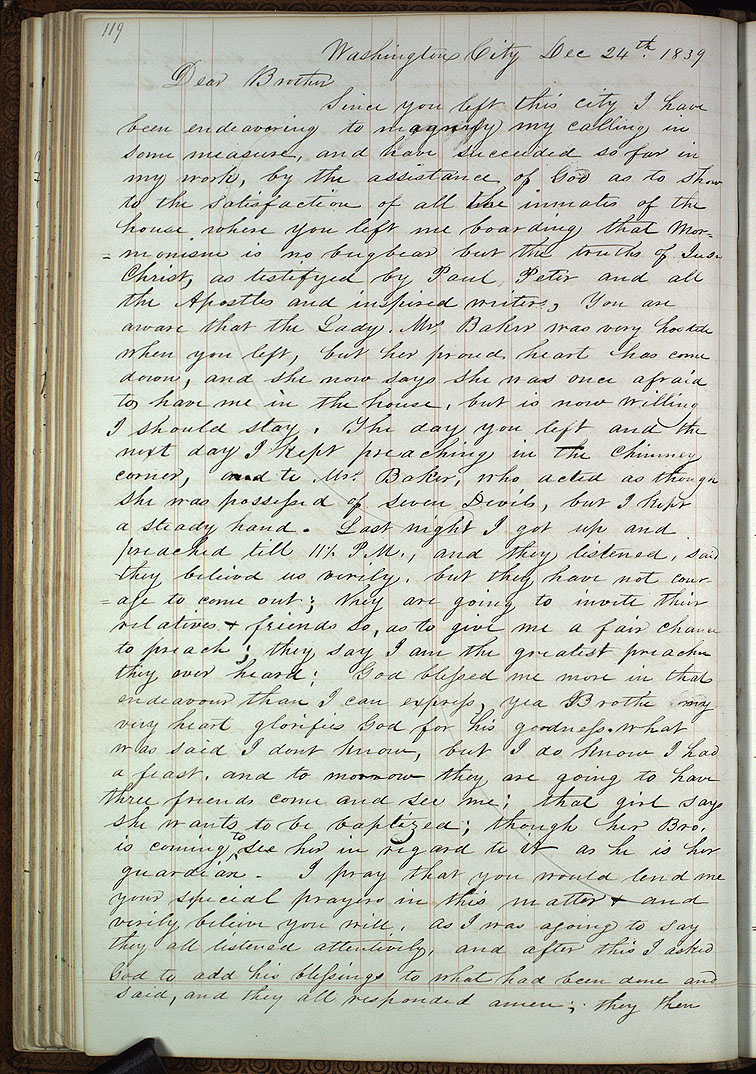 119
Washington City Dec 24th. 1839
Dear Brother
Since you left this city I have
been endeavoring to magnify my calling in
some measure, and have succeeded so far in
my work, by the assistance of God as to show
to the satisfaction of all the inmates of the
house where you left me boarding that Mor=
=monism is no bugbear but the truths of Jesus
Christ, as testifyed by Paul, Peter and all
the Apostles and inspired writers, You are
aware that the Lady. Mrs. Baker was very hostile
when you left, but her proud heart has come
down, and she now says she was once afraid
to have me in the house, but is now willing
I should stay. The day you left and the
next day I kept preaching in the chimney
corner, and to Mrs. Baker, who acted as though
she was possessed of seven Devils, but I kept
a steady hand. Last night I got up and
preached till 11½ P.M., and they listened, said
they believd us verily, but they have not cour-
=age to come out; they are going to invite their
relatives + friends so, as to give me a fair chance
to preach; they say I am the greatest preacher
they ever heard: God blessed me more in that
endeavour than I can express, yea Brother my
very heart glorifies God for his goodness. what
was said I dont know, but I do know I had
a feast, and to morrow they are going to have
three friends come and see me; that girl says
she wants to be baptized; though her Bro.
is coming to see her in regard to it as he is her
guardian. I pray that you would lend me
your special prayers in this matter + and
verily believe you will. as I was agoing to say
they all listened attentively, and after this I asked
God to add his blessings to what had been done and
said, and they all responded amen; they then